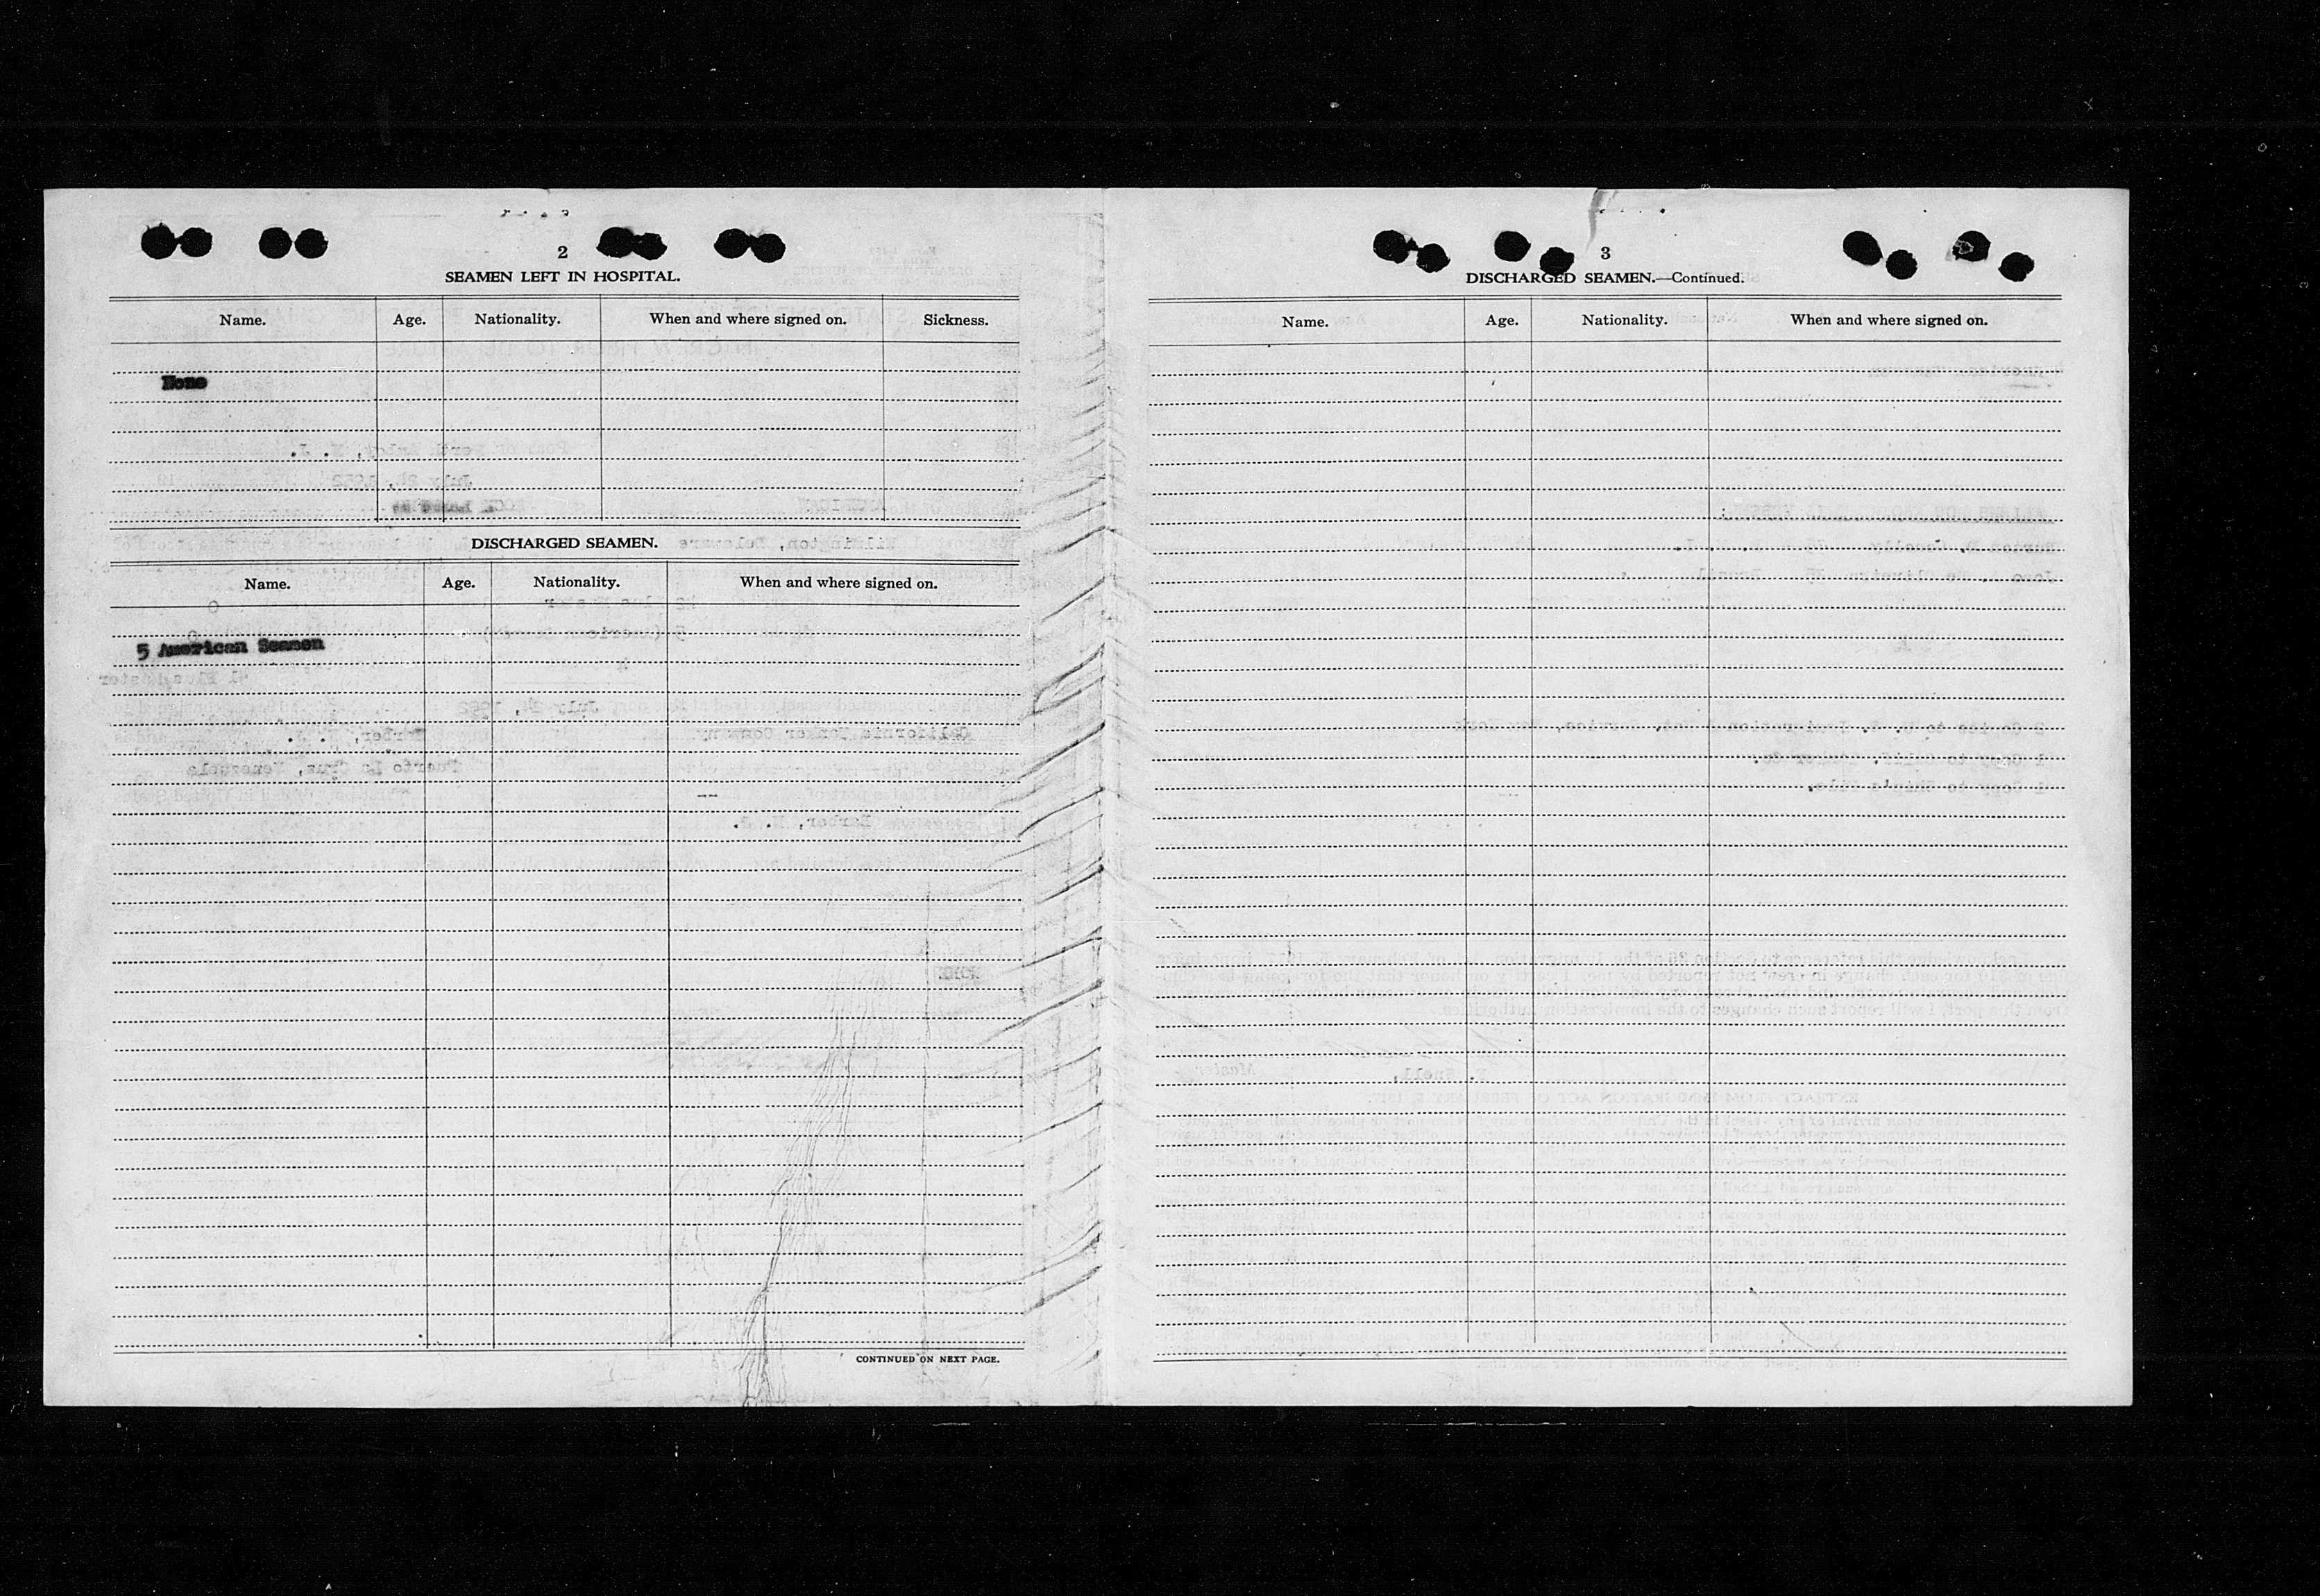 2
SEAMEN LEFT IN HOSPITAL.
Name. Age. Nationality. When and where signed on. Sickness.
None
DISCHARGED SEAMEN.
Name. Age. Nationality. When and where signed on.
5 American Seamen
CONTINUED ON NEXT PAGE.
3
DISCHARGED SEAMEN.—Continued.
Name. Age. Nationality. When and where signed on.